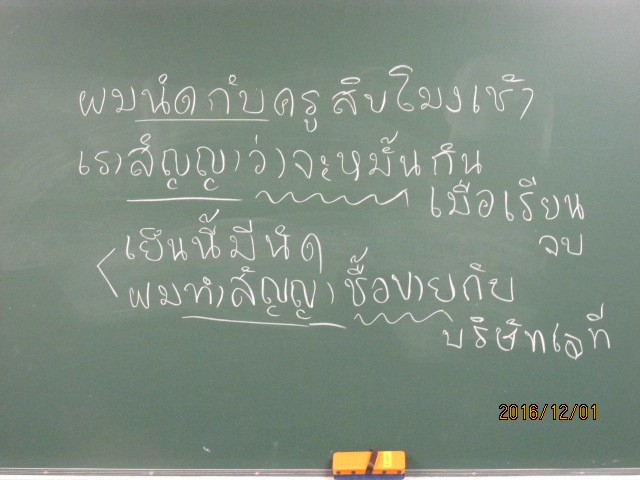 ผมนัดกับครูสิบโมงเช้า
เราสัญญาว่าจะหมั้นกัน
เมื่อเรียน
จบ
เย็นนี้มีนัด
ผมทำสัญญาซื้อขายกับ
บริษัทเอที
2016/12/01